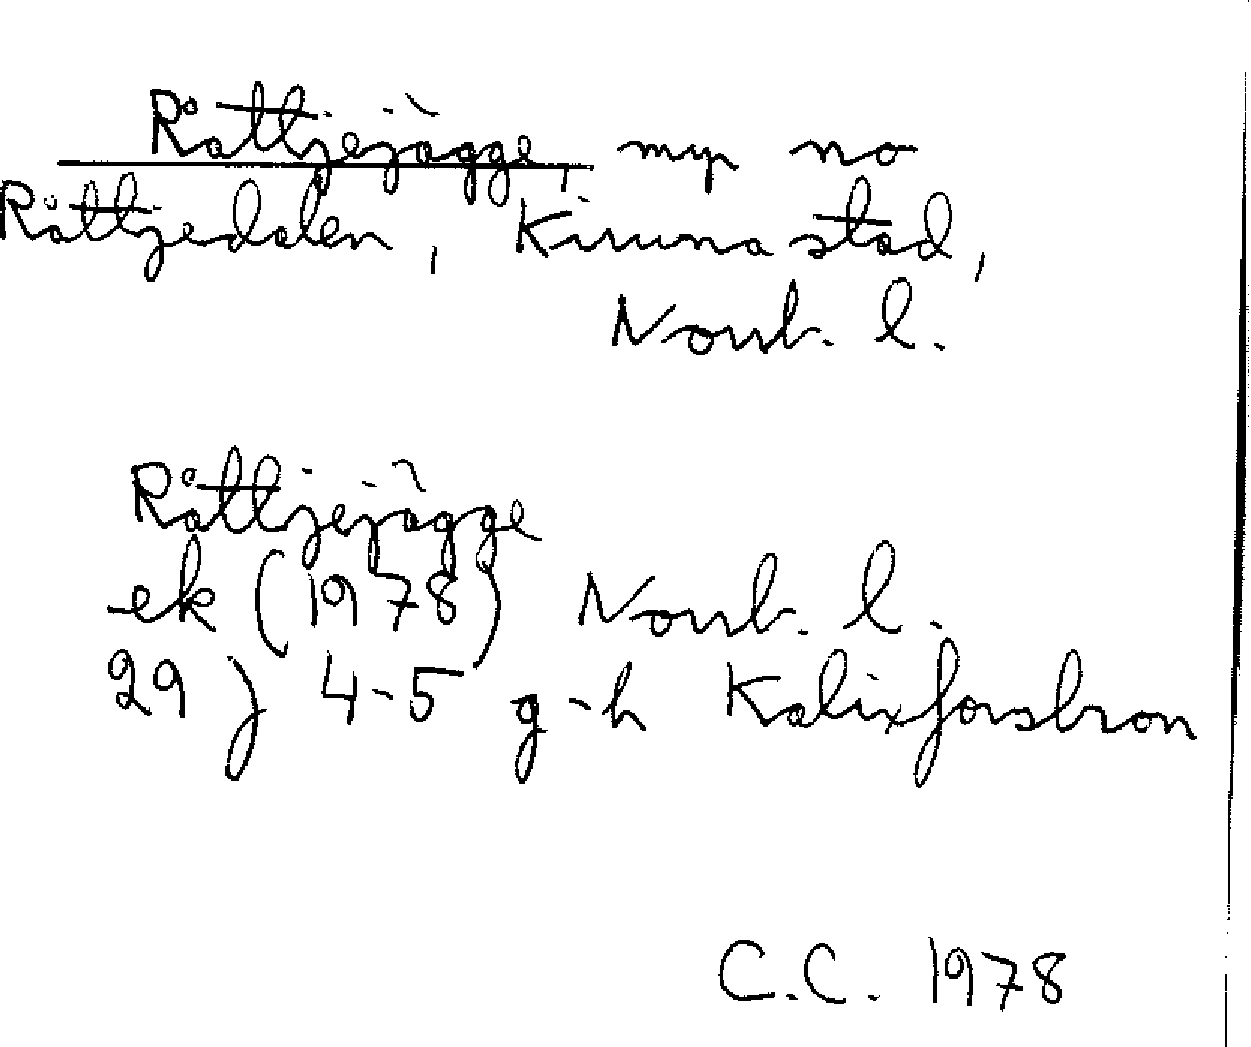 Råttjejàgge, myr no
Råttjedalen, Kiruna stad,
Norrb. l.
Råttjejàgge
ek (1978) Norrb. l.
29 J 4-5 g-h Kalixforsbron
C.C. 1978